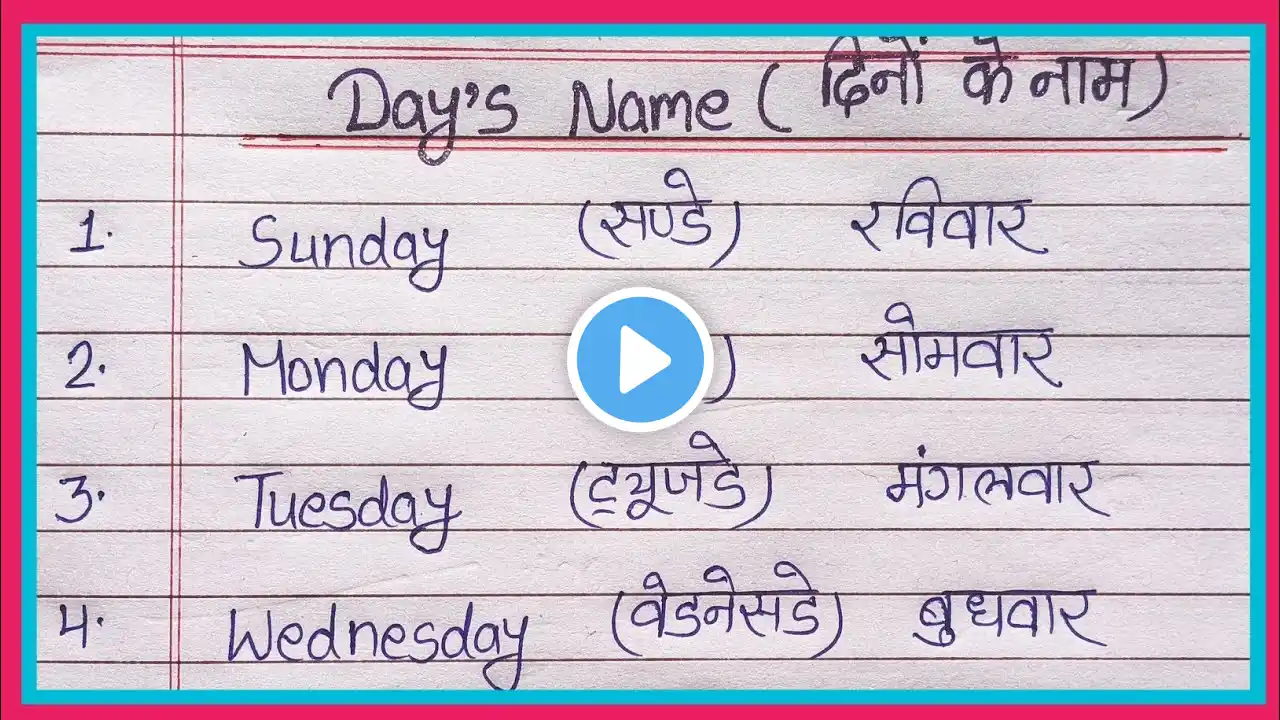 Day's Name ( दिनों के नाम )
1. Sunday (सण्डे) रविवार
2. Monday ) सोमवार
3. Tuesday (ट्यूजडे) मंगलवार
4. Wednesday (वेडनेसडे) बुधवार